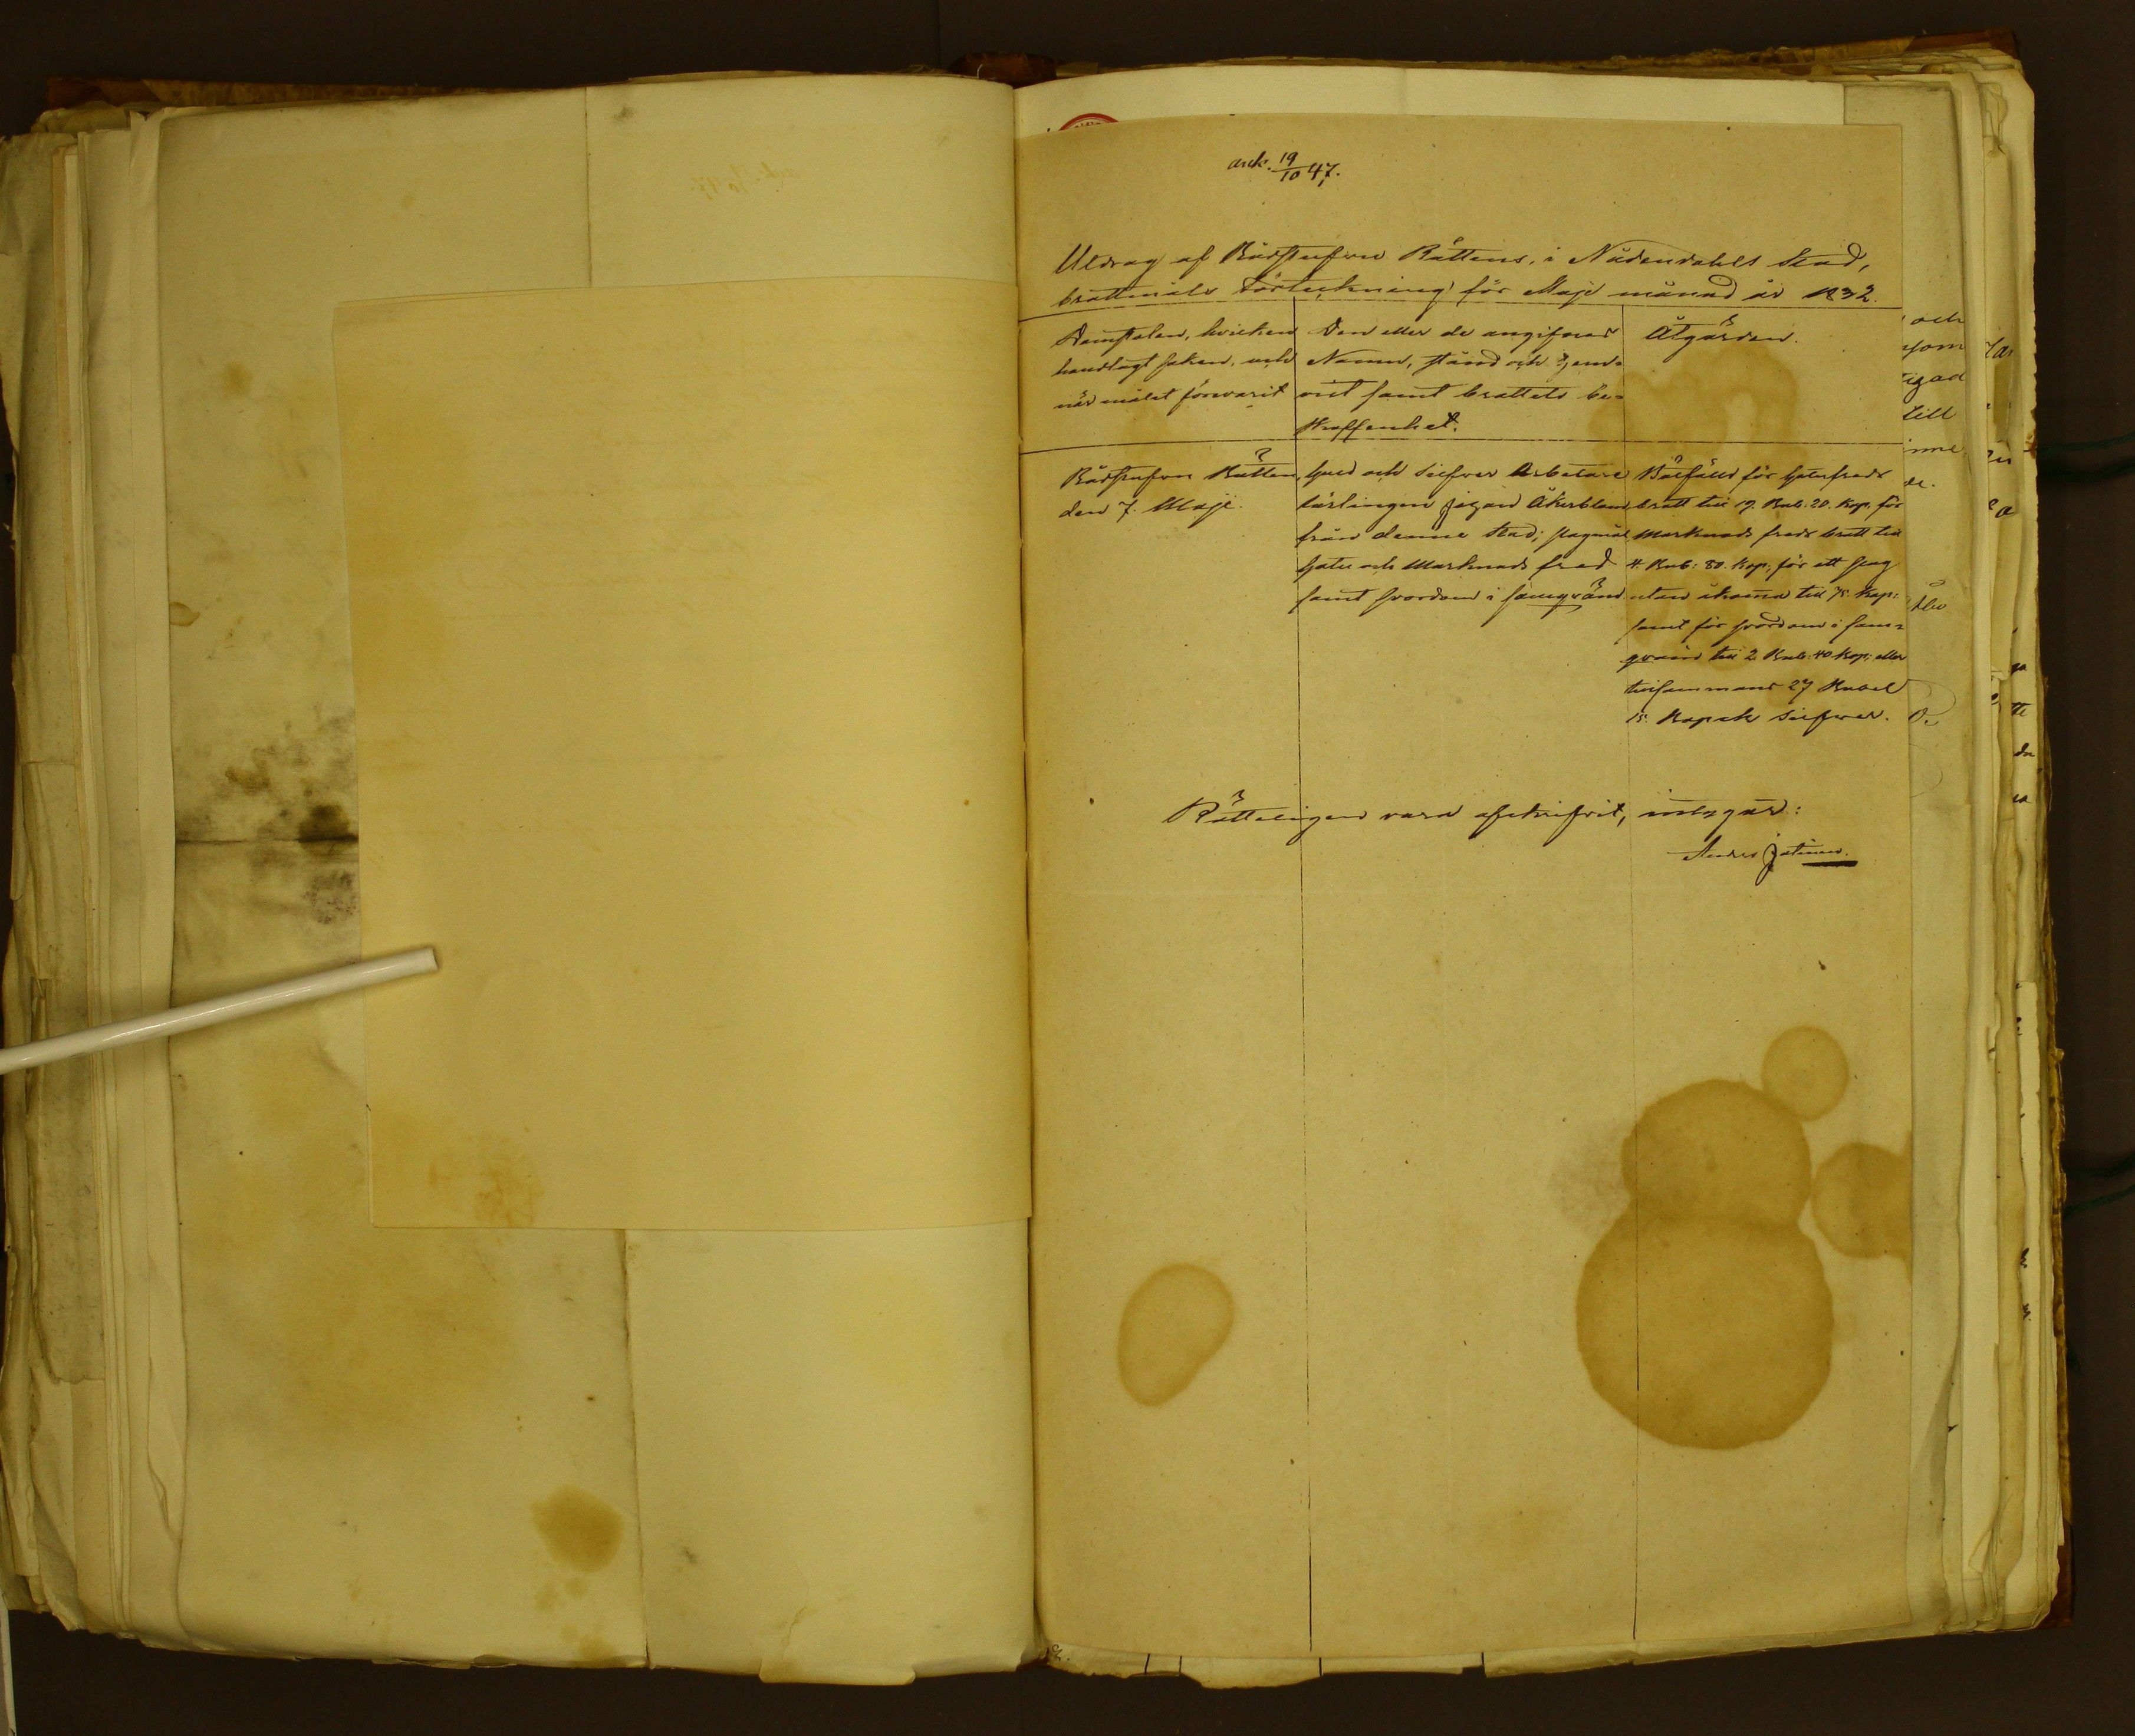 ank. 19/10 47.
Utdrag af Rådstufvu Rättens, i Nådendahls Stad,
brottmåls Förteckning för Maji månad år 1832.
Domstolen, hvilken
handlagt saken, och
när målet förevarit
Den eller de angifnas
Namn, stånd och hem-
vist samt brottets be-
skaffenhet.
Åtgärden.
Rådstufvu Rätten,
den 7. Maji.
Guld och Silfver Arbetare
lärlingen Johan Åkerblom
från denne Stad; slagmål
Gatu och Marknads fred
samt svordom i samqväm
Bötfälld för Gatufreds
brott till 19. Rub. 20. Kop, för
Marknads freds brott till
4. Rub: 80. Kop, för ett slag
utan åkoma till 75. Kop:
samt för svordom i sam-
qväm till 2. Rub: 40 Kop; eller
tillsammans 27 Rubel
15. Kopek Silfver.
Rätteligen vara afskrifvit, intygar:
och
som
till
de.